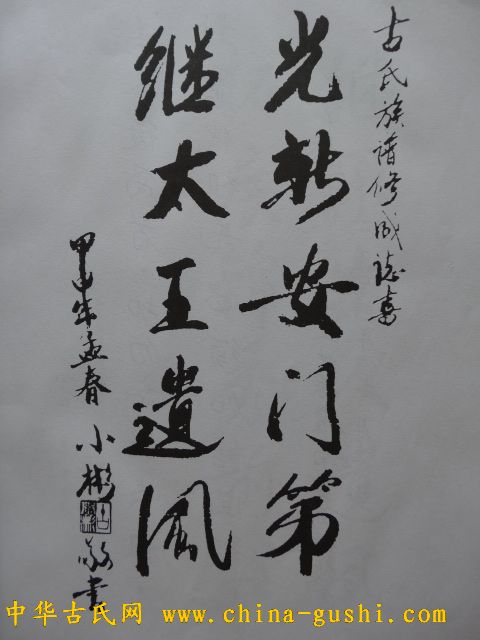 古氏族谱修成志喜
光新安门第
继太王遗风
甲申年孟春 小彬 敬书
中华古氏网 www.china-gushi.com